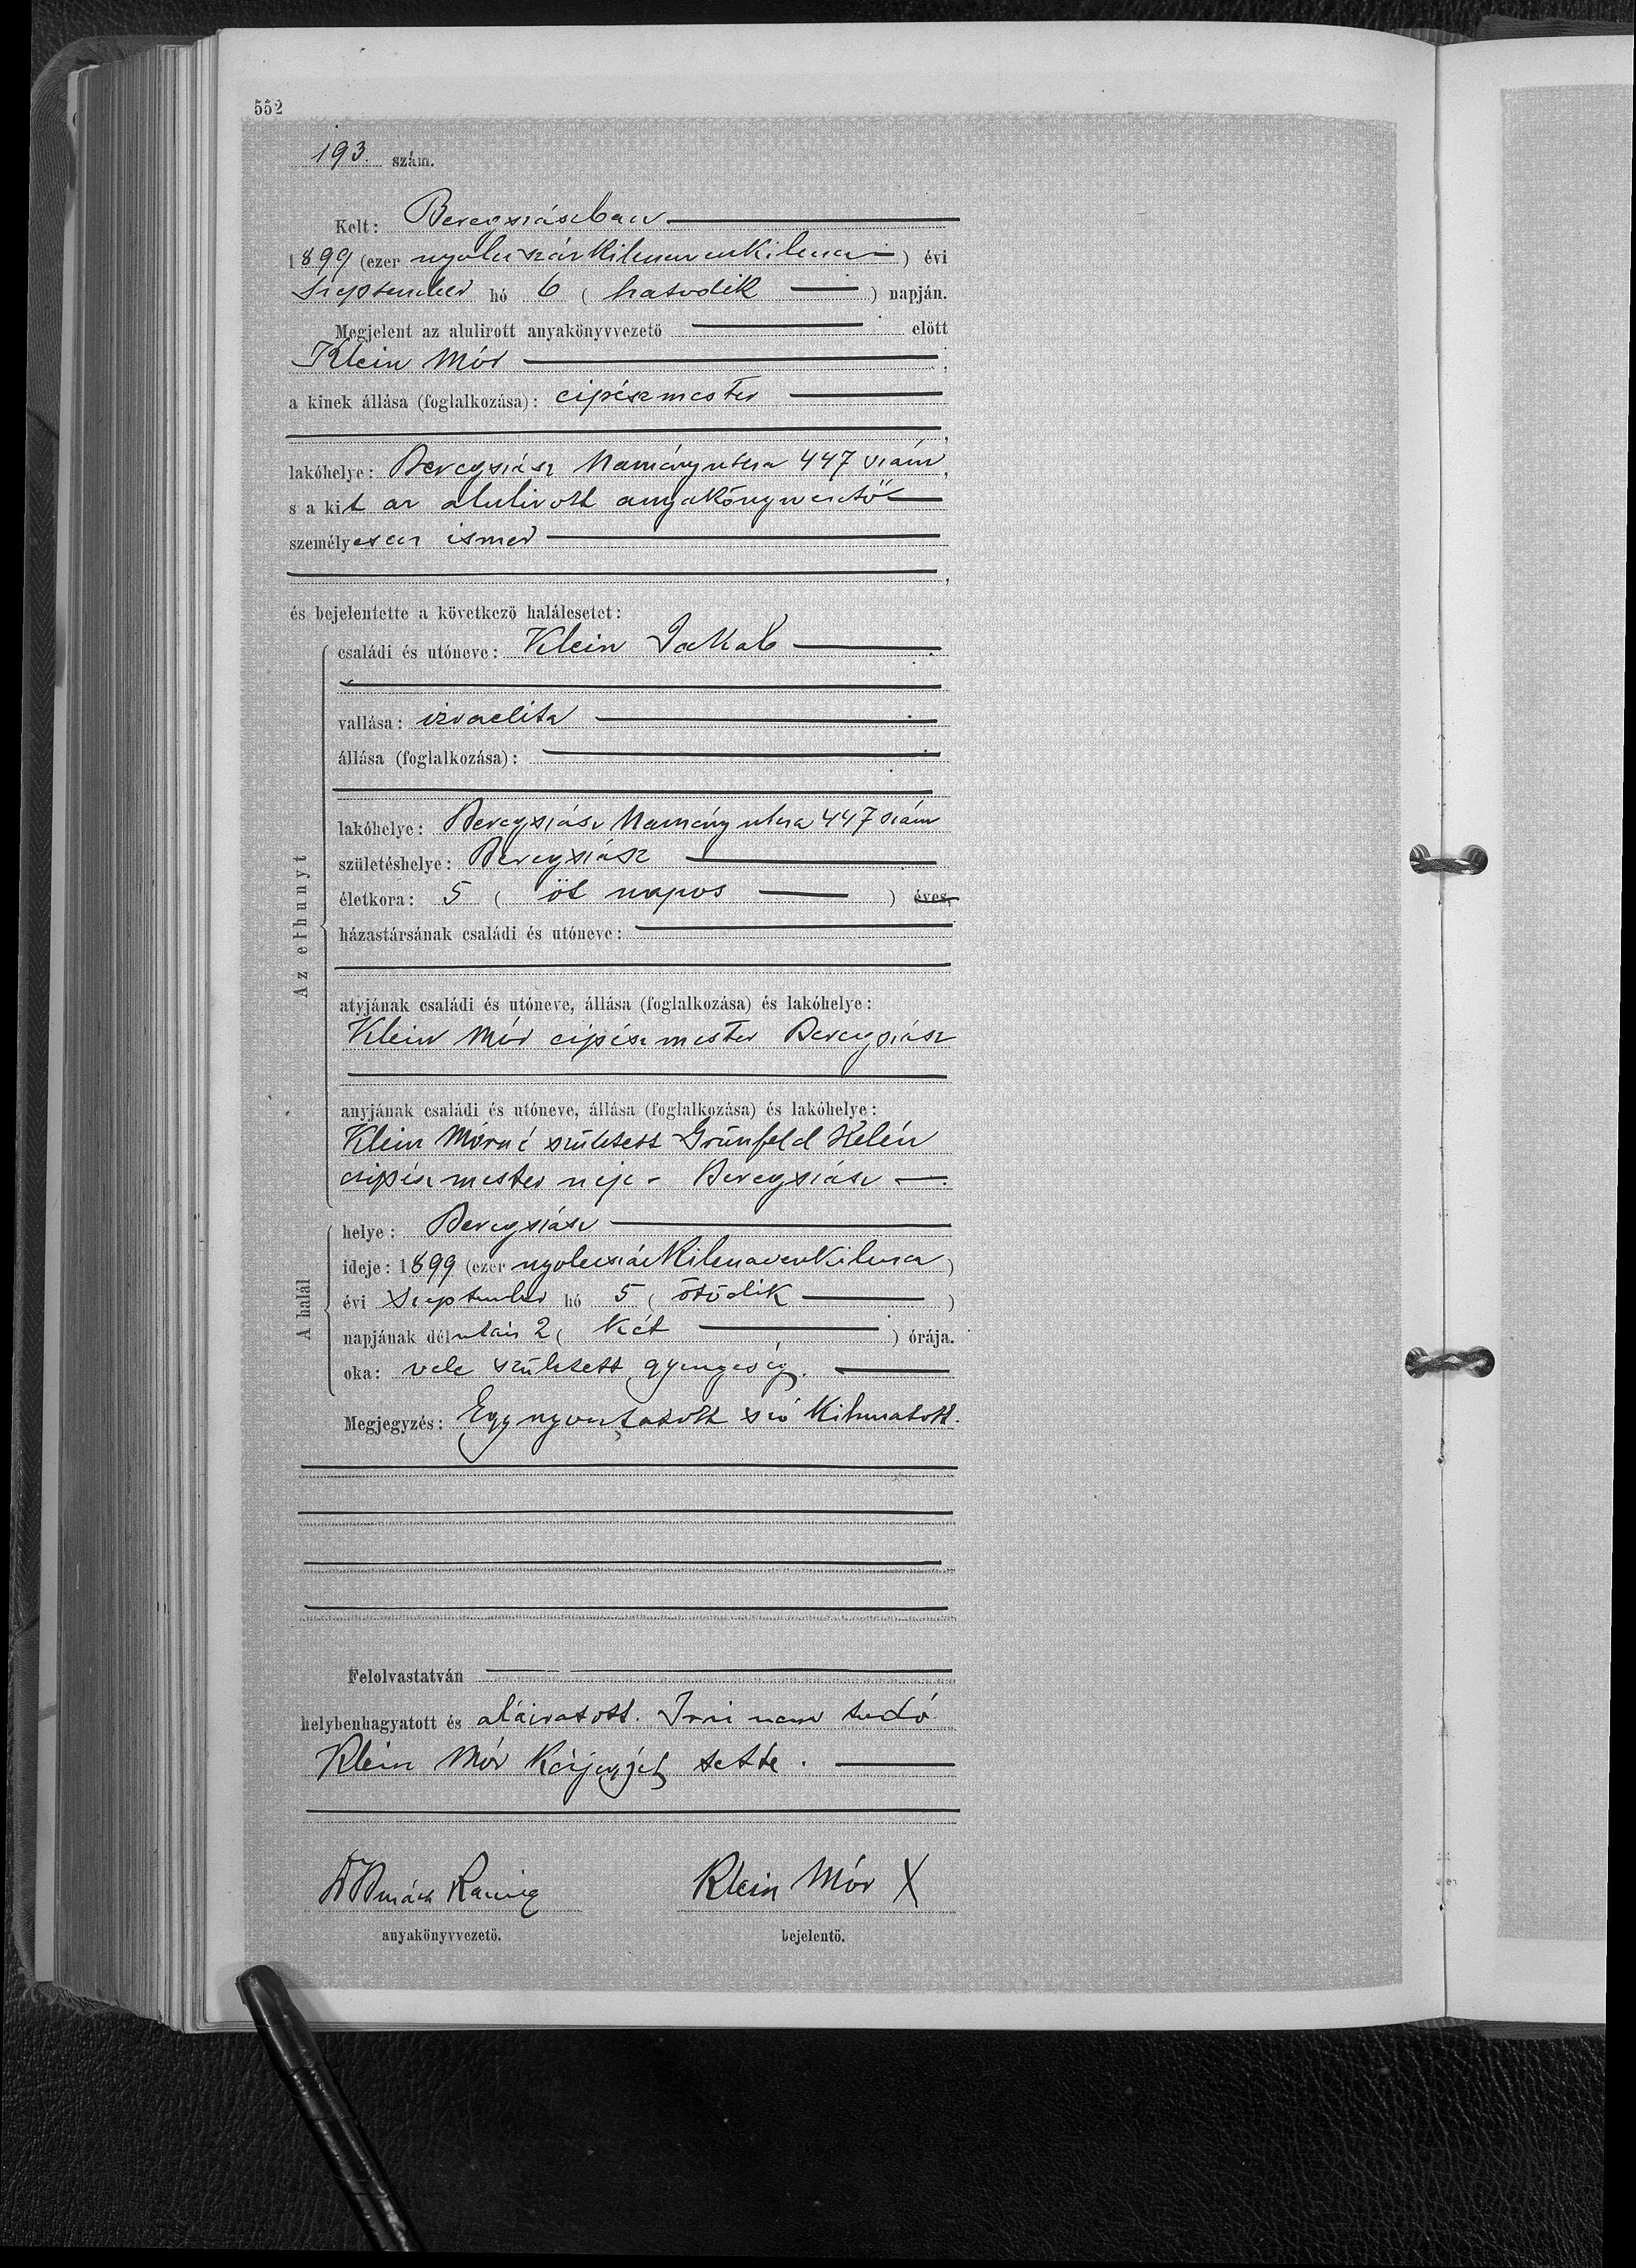 552
193. szám.
Kelt: Beregszászban
1899 (ezer nyolczszázkilenczvenkilencz) évi
Szeptember hó 6 (hatodik) napján.
Megjelent az alulirott anyakönyvvezető előtt
Klein Mór,
a kinek állása (foglalkozása): cipészmester
lakóhelye: Beregszász Namény utcza 447 szám,
s a kit az alulirott anyakönyvvezető
személyesen ismer,
és bejelentette a következő halálesetet:
Az elhunyt
családi és utóneve: Klein Jakab
vallása: izraelita
állása (foglalkozása):
lakóhelye: Beregszász Namény utcza 447 szám
születéshelye: Beregszász
életkora: 5 (öt napos) éves,
házastársának családi és utóneve:
atyjának családi és utóneve, állása (foglalkozása) és lakóhelye:
Klein Mór cipészmester Beregszász
anyjának családi és utóneve, állása (foglalkozása) és lakóhelye:
Klein Mórné született Grünfeld Helén
czipészmester neje - Beregszász
A halál
helye: Beregszász
ideje: 1899 (ezer nyolczszázkilenczvenkilencz)
évi Szeptember hó 5 (ötödik)
napjának délután 2 (két) órája.
oka: vele született gyengeség.
Megjegyzés: Egy nyomtatott szó kihuzatott.
Felolvastatván
helybenhagyatott és aláiratott. Irni nem tudó
Klein Mór kézjegyét tette.
Klein Mór X
anyakönyvvezető.
bejelentő.